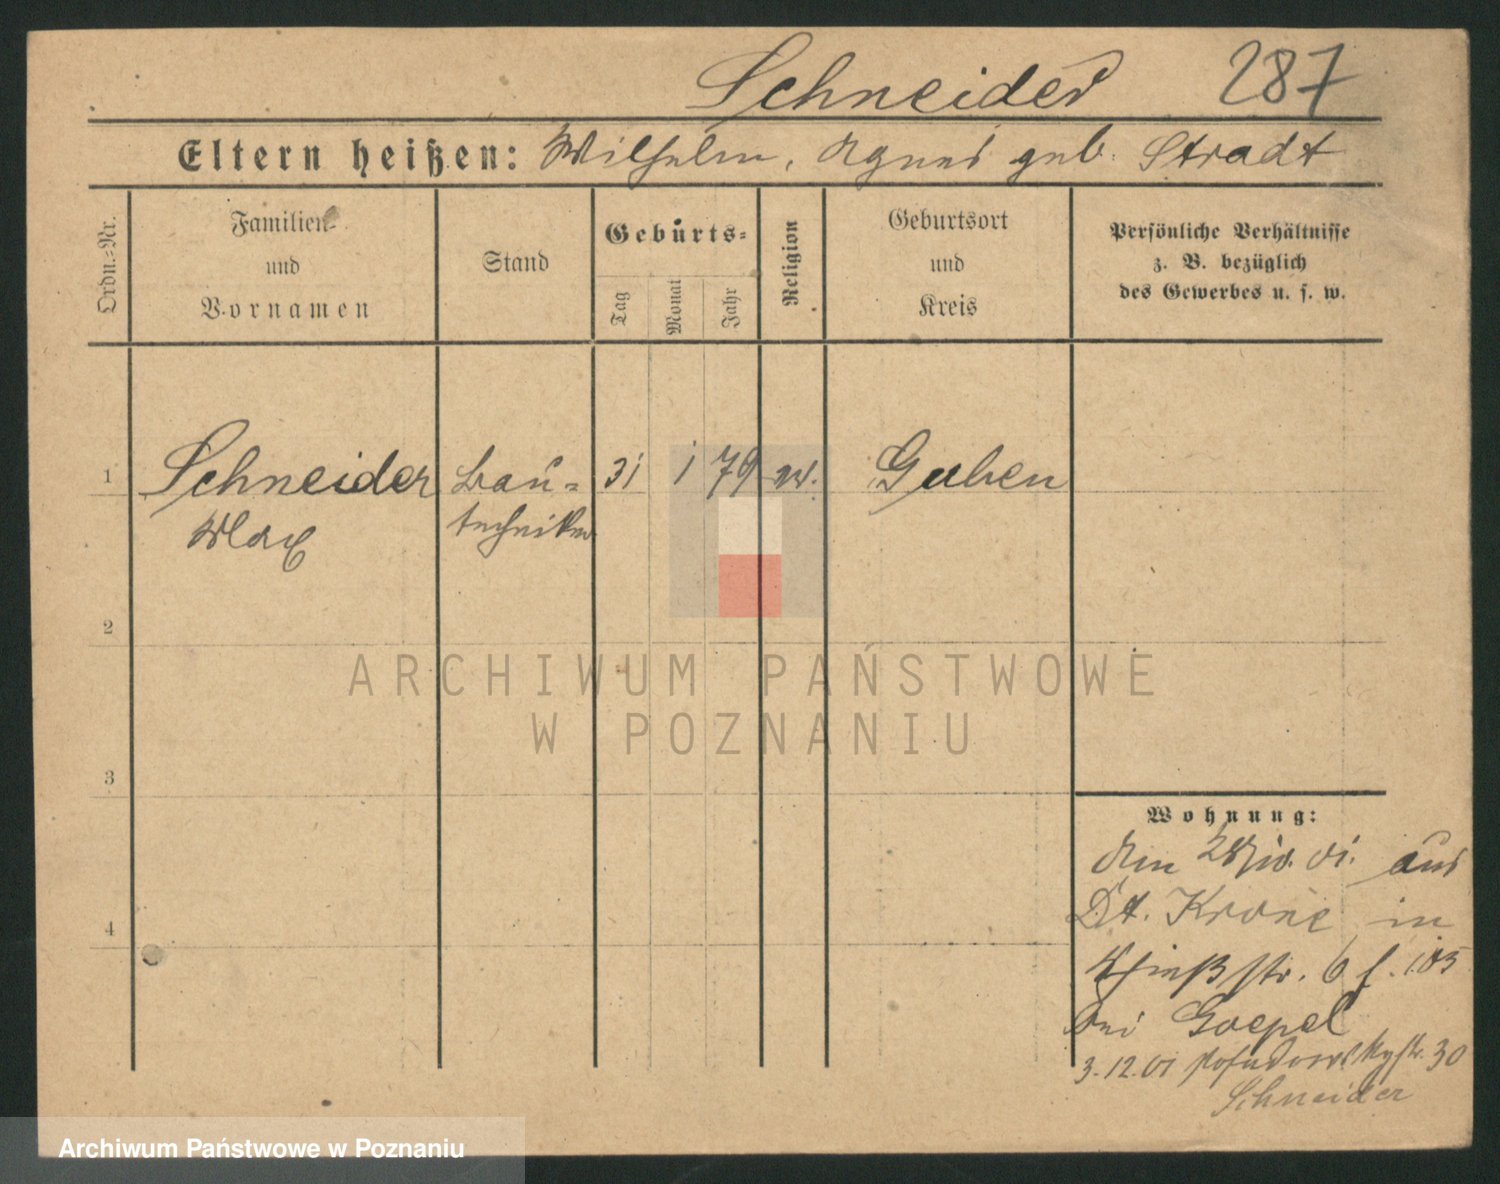 Schneider 287
Eltern heißen: Wilhelm, Agnes geb. Stradt
Ordn.-Nr.
Familien-
und
Vornamen
Stand
Geburts-
Tag
Monat
Jahr
Religion
Geburtsort
und
Kreis
Persönliche Verhältnisse
z. B. bezüglich
des Gewerbes u. s. w.
1 Schneider Bau- 31 1 79 ev. Guben
Max techniker
2
ARCHIWUM PAŃSTWOWE
W POZNANIU
3
Wohnung:
Am 01. aus
4
Dt. Krone in
str. 6
bei Goepel
3.12.01 str. 30
Schneider
Archiwum Państwowe w Poznaniu